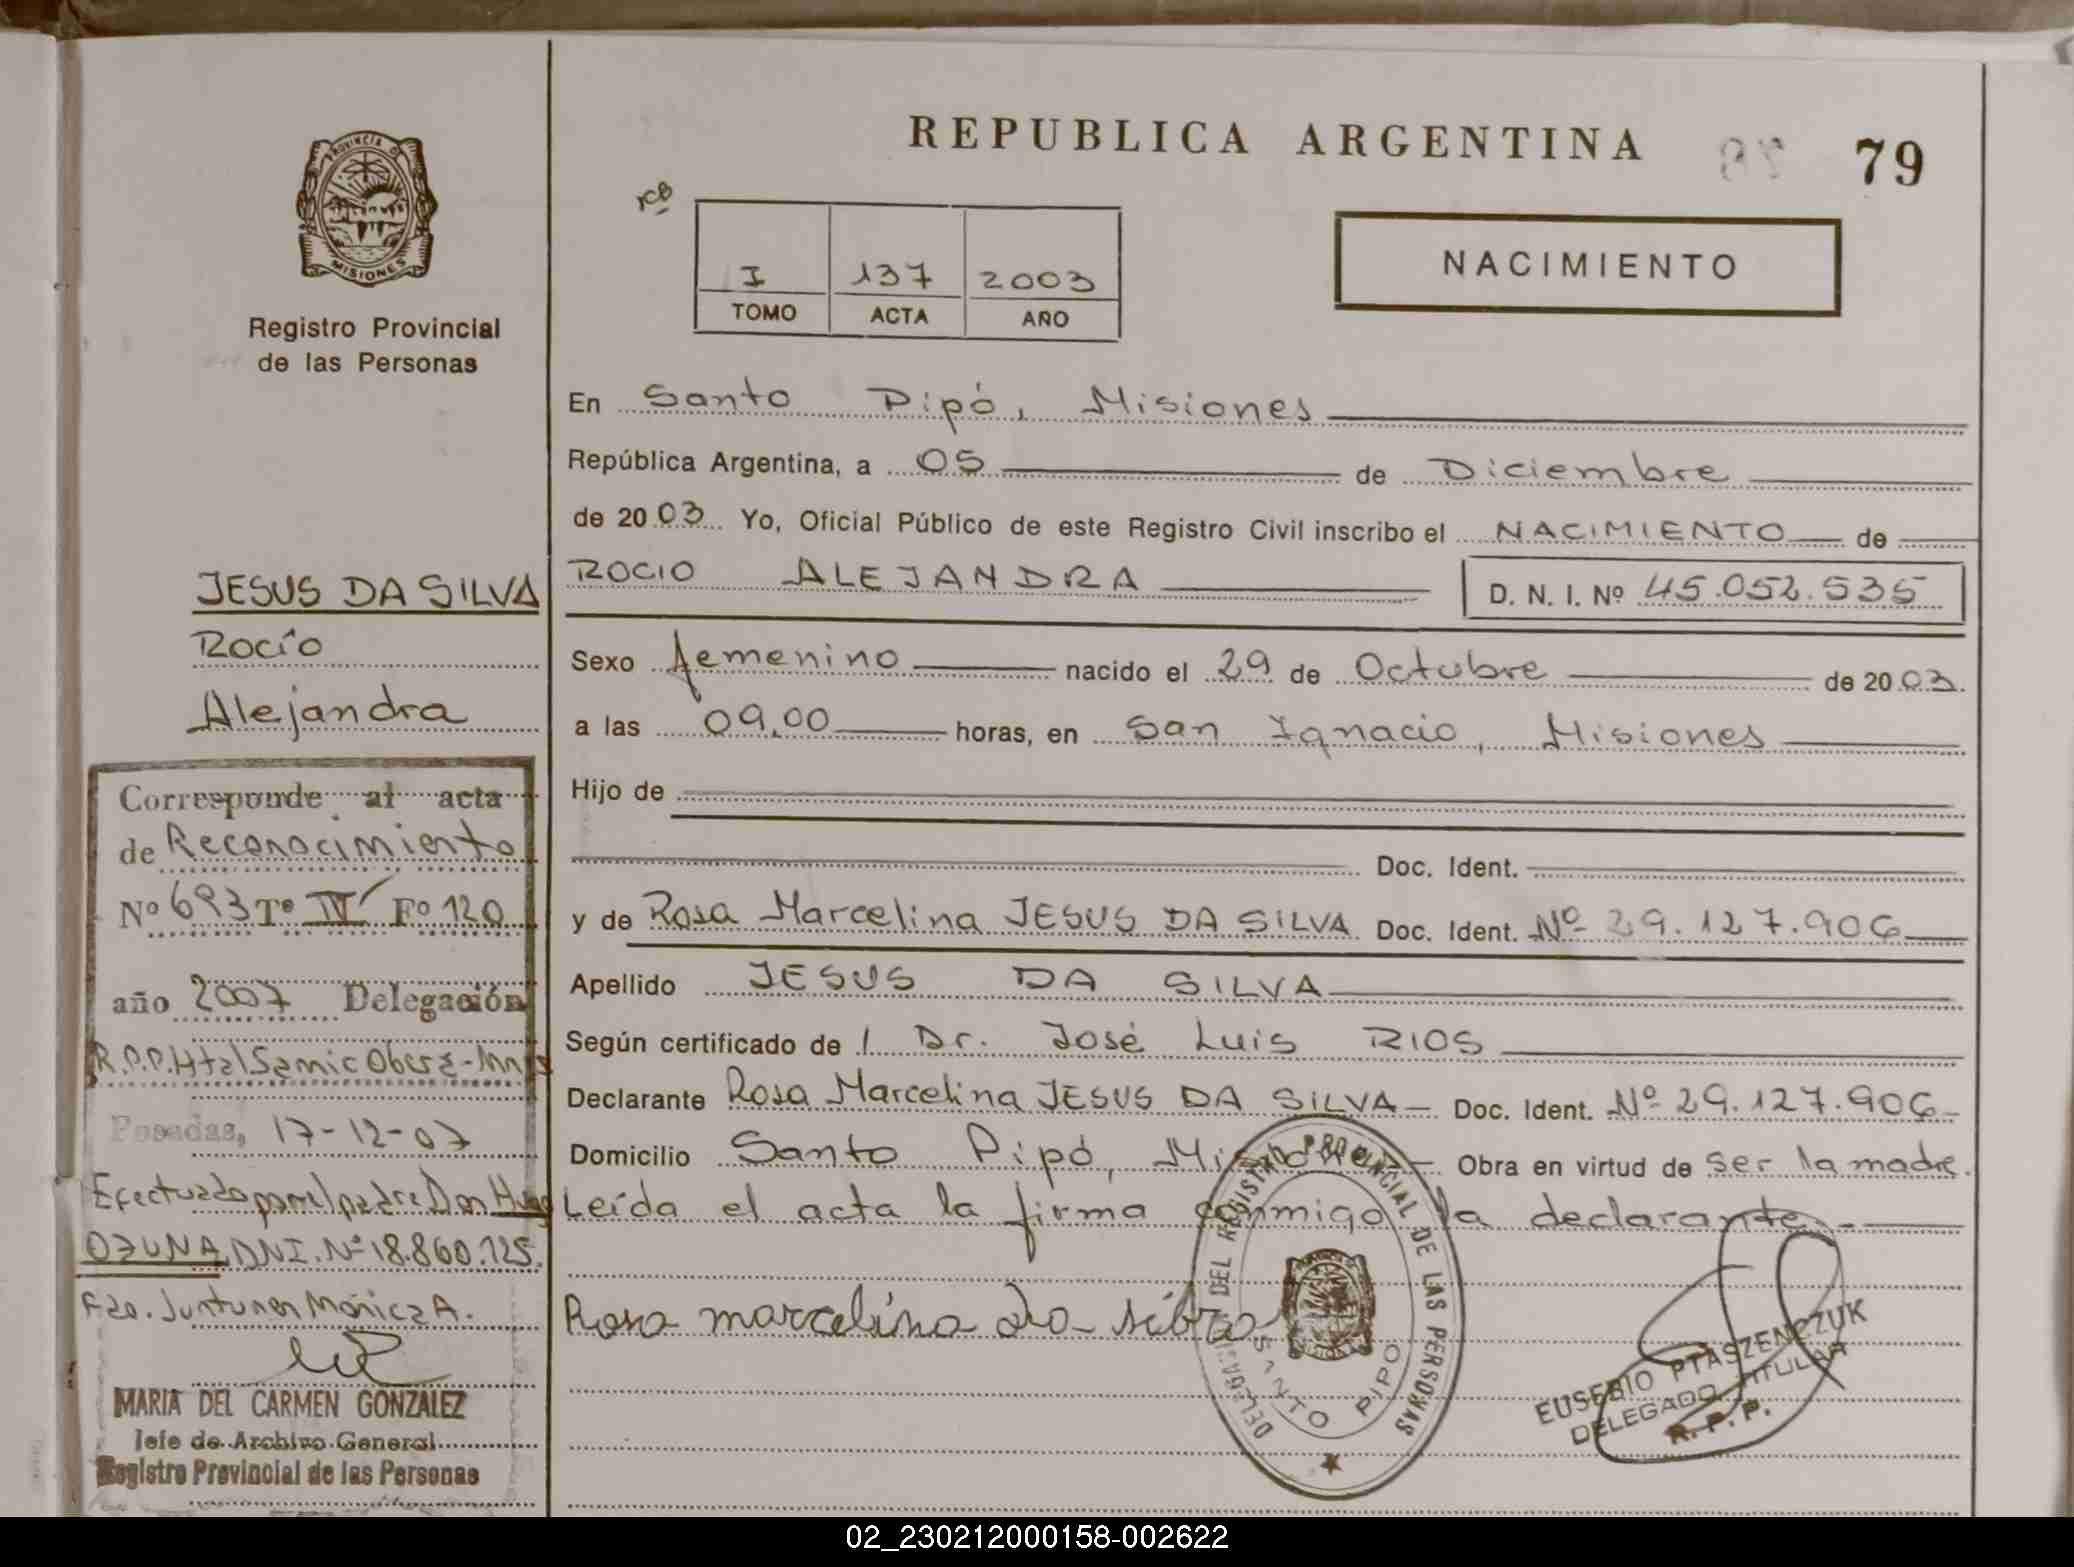 REPUBLICA ARGENTINA
79
PROVINCIA DE
MISIONES
Registro Provincial
de las Personas
I 137 2003
TOMO ACTA AÑO
NACIMIENTO
En Santo Pipó, Misiones
República Argentina, a 05 de Diciembre
de 2003 Yo, Oficial Público de este Registro Civil inscribo el NACIMIENTO de
ROCIO ALEJANDRA D. N. I. Nº 45.052.535
Sexo femenino nacido el 29 de Octubre de 2003.
a las 09,00 horas, en San Ignacio, Misiones
Hijo de
Doc. Ident.
y de Rosa Marcelina JESUS DA SILVA Doc. Ident. Nº 29.127.906
Apellido JESUS DA SILVA
Según certificado de l Dr. José Luis RIOS
Declarante Rosa Marcelina JESUS DA SILVA Doc. Ident. Nº 29.127.906
Domicilio Santo Pipó, Misiones Obra en virtud de ser la madre.
Leída el acta la firma conmigo la declarante.
Rosa marcelina da silva
DELEGACION DEL REGISTRO PROVINCIAL DE LAS PERSONAS
SANTO PIPO
EUSEBIO PTASZENCZUK
DELEGADO TITULAR
R. P. P.
JESUS DA SILVA
Rocío
Alejandra
Corresponde al acta
de Reconocimiento
Nº 693 Tº IV Fº 120
año 2007 Delegación
R.P.P. Htal Samic Oberá-Mnes
Posadas, 17-12-07
Efectuado por el padre Don Hugo
OZUNA, DNI. Nº 18.860.125.
Fdo. Juntunen Mónica A.
MARIA DEL CARMEN GONZALEZ
Jefe de Archivo General
Registro Provincial de las Personas
02_230212000158-002622